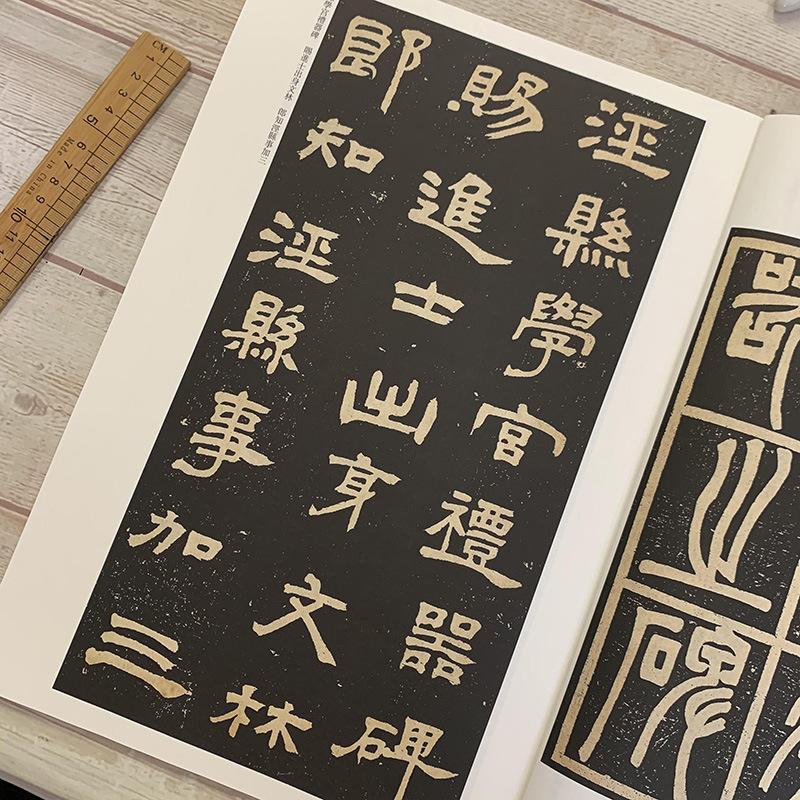 涇縣學官禮器碑
賜進士出身文林
郎知涇縣事加三
學官禮器碑 賜進士出身文林 郎知涇縣事加三
之碑
CM 1 2 3 4 5 6 7 8 9 10 11
Made in China